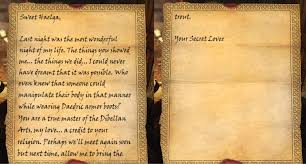 Sweet Haelga,
Last night was the most wonderful
night of my life. The things you showed
me... the things we did... I could never
have dreamt that it was possible. Who
even knew that someone could
manipulate their body in that manner
while wearing Daedric armor boots?
You are a true master of the Dibellan
Arts, my love... a credit to your
religion. Perhaps we'll meet again soon
but next time, allow me to bring the
trout.
Your Secret Lover